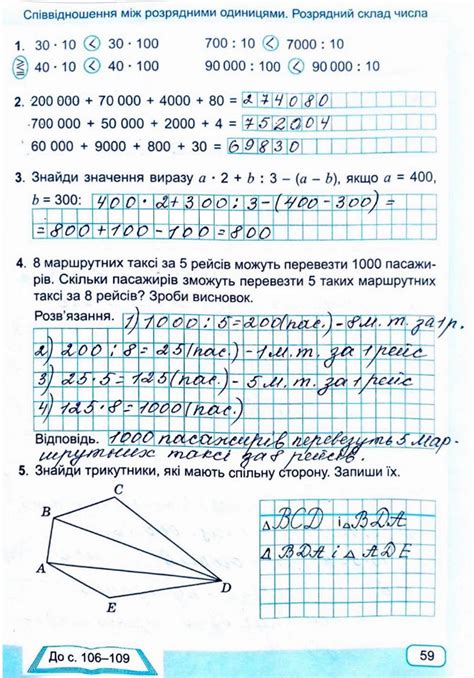 Співвідношення між розрядними одиницями. Розрядний склад числа
1. 30 · 10 < 30 · 100 700 : 10 < 7000 : 10
40 · 10 < 40 · 100 90 000 : 100 < 90 000 : 10
2. 200 000 + 70 000 + 4000 + 80 = 274080
700 000 + 50 000 + 2000 + 4 = 752004
60 000 + 9000 + 800 + 30 = 69830
3. Знайди значення виразу a · 2 + b : 3 – (a – b), якщо a = 400,
b = 300: 400 · 2 + 300 : 3 - (400 - 300) =
= 800 + 100 - 100 = 800
4. 8 маршрутних таксі за 5 рейсів можуть перевезти 1000 пасажи-
рів. Скільки пасажирів зможуть перевезти 5 таких маршрутних
таксі за 8 рейсів? Зроби висновок.
Розв'язання. 1) 1000 : 5 = 200 (пас.) - 8 м. т. за 1 р.
2) 200 : 8 = 25 (пас.) - 1 м. т. за 1 рейс
3) 25 · 5 = 125 (пас.) - 5 м. т. за 1 рейс
4) 125 · 8 = 1000 (пас.)
Відповідь. 1000 пасажирів перевезуть 5 мар-
шрутних таксі за 8 рейсів.
5. Знайди трикутники, які мають спільну сторону. Запиши їх.
C
B
A
D
E
△ BCD і △ BDA
△ BDA і △ ADE
До с. 106–109
59